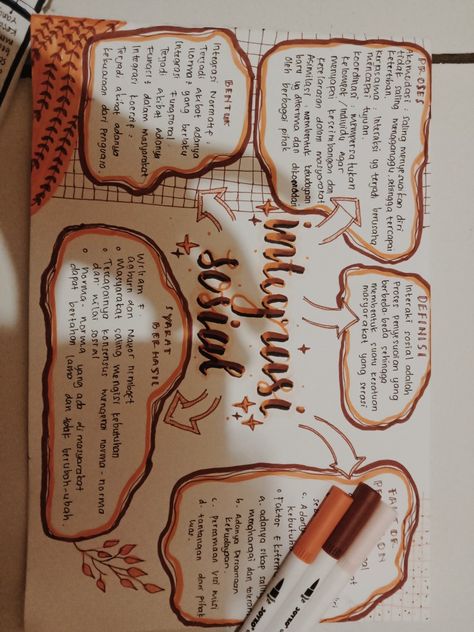 integrasi
sosial
DEFINISI
Interaksi sosial adalah
Proses penyesuaian yang
berbeda beda sehingga
membentuk suatu kesatuan
masyarakat yang serasi
PROSES
Akomodasi : saling menyesuaikan diri
tidak saling mengganggu, sehingga tercapai
ketertiban.
Kerjasama : interaksi yg terjadi berusaha
mencapai tujuan
koordinasi : mempersatukan
kelompok / individu agar
mencapai keseimbangan dan
keselarasan dalam masyarakat
Asimilasi : membentuk kebudayaan
baru yg diterima dan dikomodasi
oleh berbagai pihak
BENTUK
Integrasi Normatif
Terjadi akibat adanya
norma yang berlaku
Integrasi Fungsional
Terjadi akibat adanya
fungsi² dalam masyarakat
Integrasi koersif
Terjadi akibat adanya
kekuasaan dari Penguasa.
SYARAT
BERHASIL
William F.
Ogburn dan Mayor Nimkoff
Masyarakat saling mengisi kebutuhan
Tercapainya konsensus mengenai norma-norma
dan nilai sosial
Norma-norma yang ada di masyarakat
dapat bertahan lama dan tidak berubah-ubah.
FAKTOR
c. Adanya
kebutuhan
Faktor Ekstern
a. adanya sikap saling
menghargai dan
b. Adanya Persamaan
kebudayaan
c. Persamaan visi misi
d. tantangan dari pihak
luar.